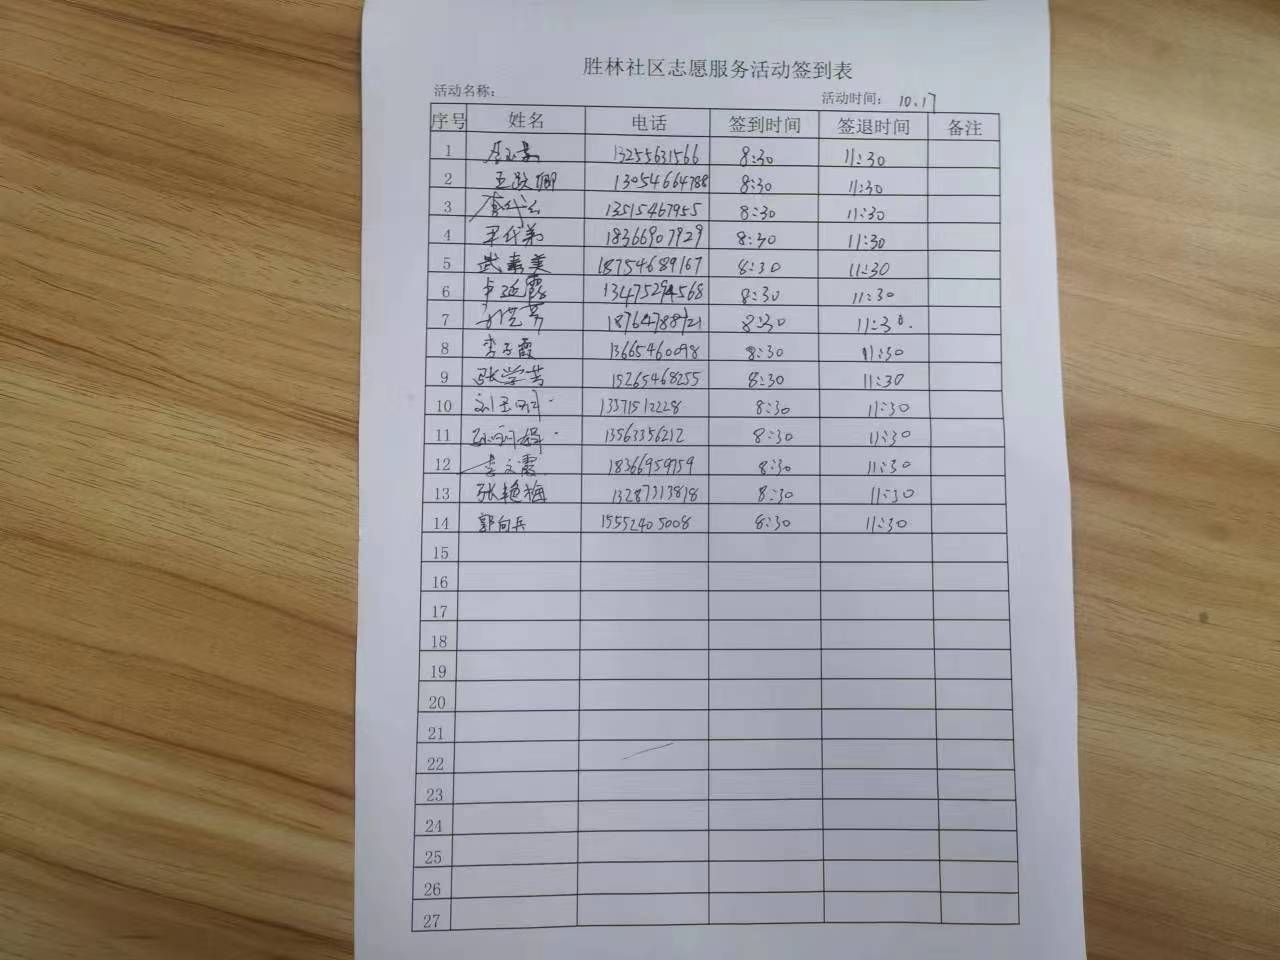 胜林社区志愿服务活动签到表
活动名称： 活动时间： 10.17
序号 姓名 电话 签到时间 签退时间 备注
1 13255631566 8:30 11:30
2 王跃卿 13054664788 8:30 11:30
3 13515467955 8:30 11:30
4 18366907929 8:30 11:30
5 武素美 18754689167 8:30 11:30
6 卢延霞 13475294568 8:30 11:30
7 18764788721 8:30 11:30.
8 李子霞 13665460098 8:30 11:30
9 张学芳 15265468255 8:30 11:30
10 刘玉 13371512228 8:30 11:30
11 13563356212 8:30 11:30
12 李文霞 18366959759 8:30 11:30
13 张艳梅 13287313818 8:30 11:30
14 郭向兵 15552405008 8:30 11:30
15
16
17
18
19
20
21
22
23
24
25
26
27